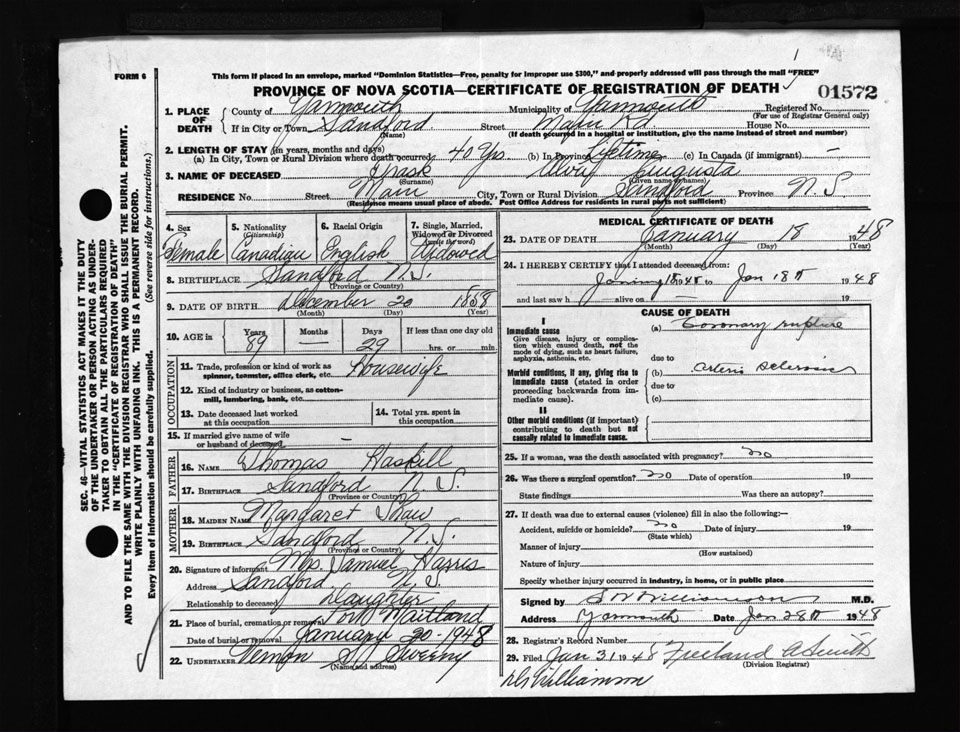 FORM 6
This form if placed in an envelope, marked "Dominion Statistics—Free, penalty for improper use $300," and properly addressed will pass through the mail "FREE"
PROVINCE OF NOVA SCOTIA—CERTIFICATE OF REGISTRATION OF DEATH 01572
1. PLACE OF DEATH County of Yarmouth Municipality of Yarmouth Registered No. (For use of Registrar General only)
If in City or Town Sandford (Name) Street Main Rd House No.
(If death occurred in a hospital or institution, give the name instead of street and number)
2. LENGTH OF STAY (in years, months and days)
(a) In City, Town or Rural Division where death occurred 40 Yrs. (b) In Province Lifetime (c) In Canada (if immigrant) —
3. NAME OF DECEASED (Surname) Augusta (Given name or names)
RESIDENCE No. Main City, Town or Rural Division Sandford Province N.S
(Residence means usual place of abode. Post Office Address for residents in rural parts not sufficient)
4. Sex Female
5. Nationality (Citizenship) Canadian
6. Racial Origin English
7. Single, Married, Widowed or Divorced (write the word) Widowed
8. BIRTHPLACE Sandford N.S. (Province or Country)
9. DATE OF BIRTH December 20 1858
(Month) (Day) (Year)
10. AGE in Years 89 Months — Days 29 If less than one day old hrs. or min.
OCCUPATION
11. Trade, profession or kind of work as spinner, teamster, office clerk, etc. Housewife
12. Kind of industry or business, as cotton-mill, lumbering, bank, etc.
13. Date deceased last worked at this occupation
14. Total yrs. spent in this occupation
15. If married give name of wife or husband of deceased —
FATHER
16. NAME Thomas Haskell
17. BIRTHPLACE Sandford N.S. (Province or Country)
MOTHER
18. MAIDEN NAME Margaret Shaw
19. BIRTHPLACE Sandford N.S. (Province or Country)
20. Signature of informant Mrs. Samuel Harris
Address Sandford N.S
Relationship to deceased Daughter
21. Place of burial, cremation or removal Port Maitland
Date of burial or removal January 20-1948
22. UNDERTAKER Vernon Sweeny
(Name and address)
MEDICAL CERTIFICATE OF DEATH
23. DATE OF DEATH January 18 1948
(Month) (Day) (Year)
24. I HEREBY CERTIFY that I attended deceased from:
1948 to Jan 18th 1948
and last saw h alive on 19
CAUSE OF DEATH
I
Immediate cause
Give disease, injury or complication which caused death, not the mode of dying, such as heart failure, asphyxia, asthenia, etc.
(a) Coronary rupture
due to
Morbid conditions, if any, giving rise to immediate cause (stated in order proceeding backwards from immediate cause).
(b) Arterio Sclerosis
due to
(c)
II
Other morbid conditions (if important) contributing to death but not causally related to immediate cause.
25. If a woman, was the death associated with pregnancy? no
26. Was there a surgical operation? no Date of operation 19
State findings Was there an autopsy?
27. If death was due to external causes (violence) fill in also the following:—
Accident, suicide or homicide? no (State which) Date of injury 19
Manner of injury (How sustained)
Nature of injury
Specify whether injury occurred in industry, in home, or in public place
Signed by Williamson M.D.
Address Yarmouth Date Jan 28th 1948
28. Registrar's Record Number
29. Filed Jan 31 1948 Freeland A Smith
(Division Registrar)
Dr Williamson
SEC. 46—VITAL STATISTICS ACT MAKES IT THE DUTY OF THE UNDERTAKER OR PERSON ACTING AS UNDERTAKER TO OBTAIN ALL THE PARTICULARS REQUIRED IN THE "CERTIFICATE OF REGISTRATION OF DEATH" AND TO FILE THE SAME WITH THE DIVISION REGISTRAR WHO SHALL ISSUE THE BURIAL PERMIT.
WRITE PLAINLY WITH UNFADING INK. THIS IS A PERMANENT RECORD.
Every item of information should be carefully supplied. (See reverse side for instructions.)